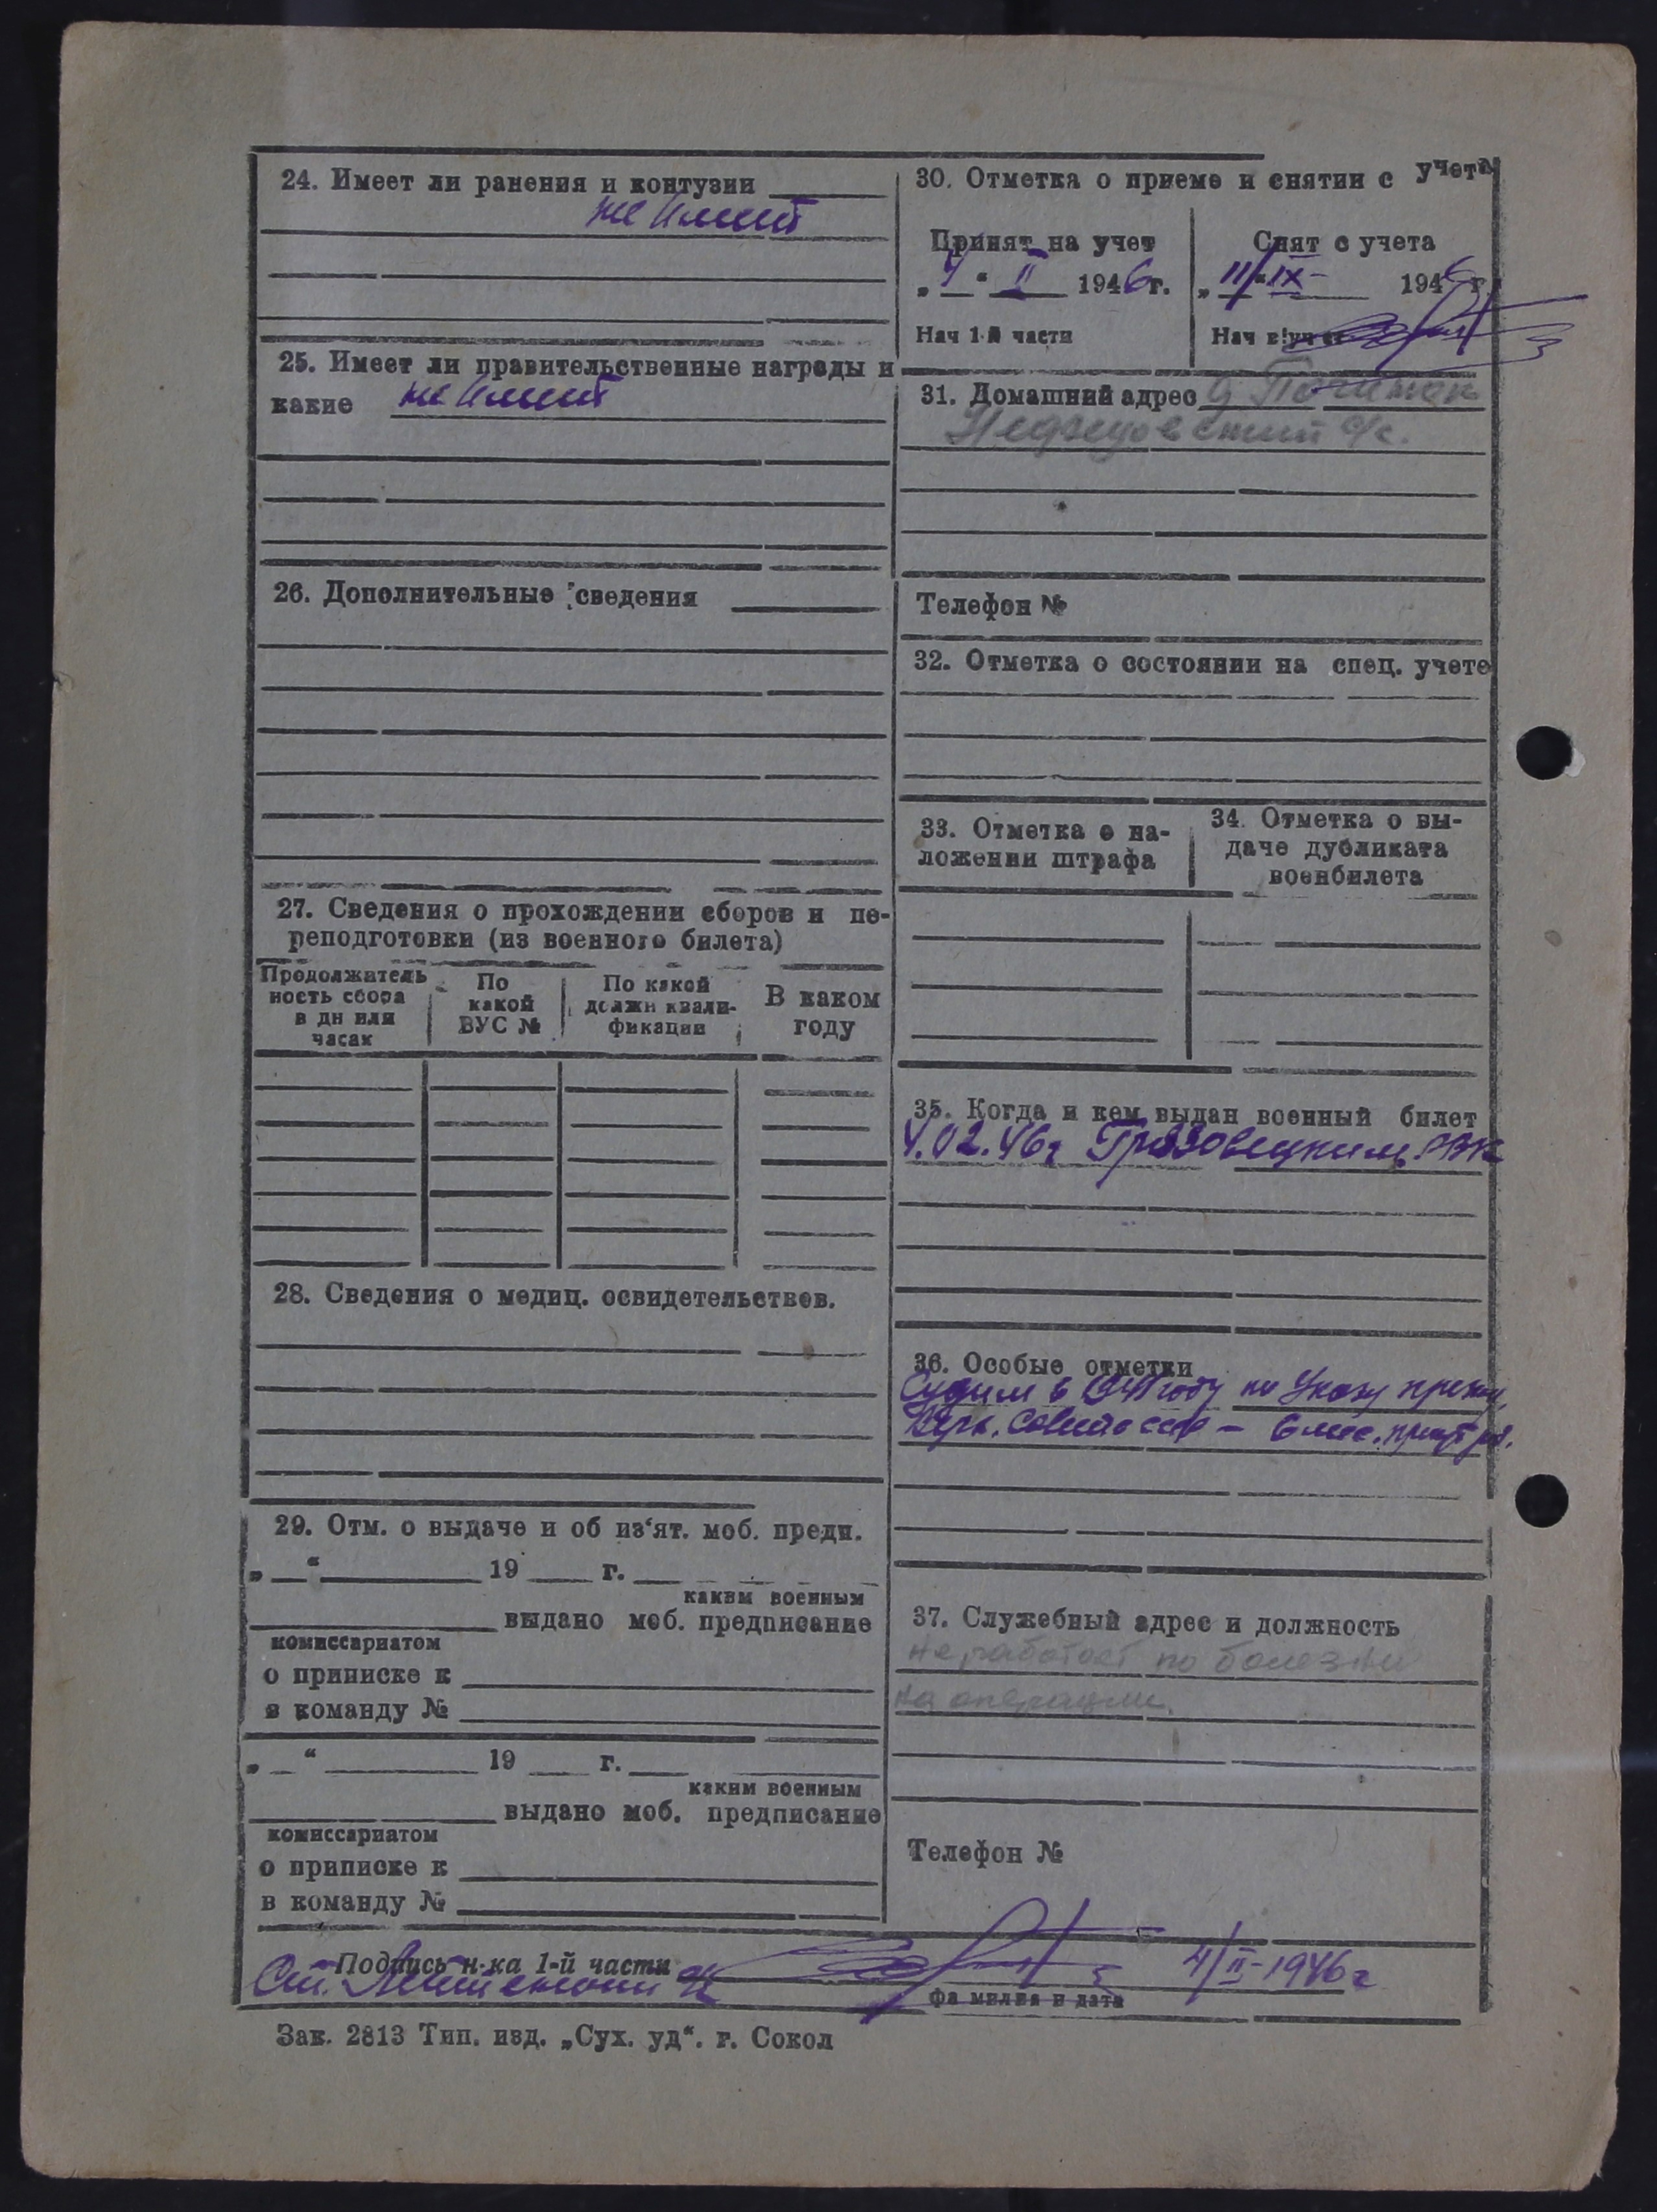 24. Имеет ли ранения и контузии
не имеет
25. Имеет ли правительственные награды и
какие не имеет
26. Дополнительные сведения
27. Сведения о прохождении сборов и пе-
реподготовки (из военного билета)
Продолжитель
ность сбора
в дн или
часах
По
какой
ВУС №
По какой
должн квали-
фикации
В каком
году
28. Сведения о медиц. освидетельствов.
29. Отм. о выдаче и об из‘ят. моб. предп.
„ “ 19 г.
каким военным
выдано моб. предписание
комиссариатом
о приписке к
в команду №
„ “ 19 г.
каким военным
выдано моб. предписание
комиссариатом
о приписке к
в команду №
30. Отметка о приеме и снятии с учета
Принят на учет
„4“ II 1946г.
Нач 1-й части
Снят с учета
„11“ IX 1946г.
Нач
31. Домашний адрес д
с/с.
Телефон №
32. Отметка о состоянии на спец. учете
33. Отметка о на-
ложении штрафа
34. Отметка о вы-
даче дубликата
военбилета
35. Когда и кем выдан военный билет
4.02.46г Грязовецким РВК
36. Особые отметки
Судим в 1941 году по Указу през.
Верх. Совета СССР – 6 мес. прин. раб.
37. Служебный адрес и должность
не работает по болезни
на операции.
Телефон №
Подпись н-ка 1-й части
Ст. Лейтенант
4/II-1946г
Фамилия и дата
Зак. 2813 Тип. изд. „Сух. уд“. г. Сокол